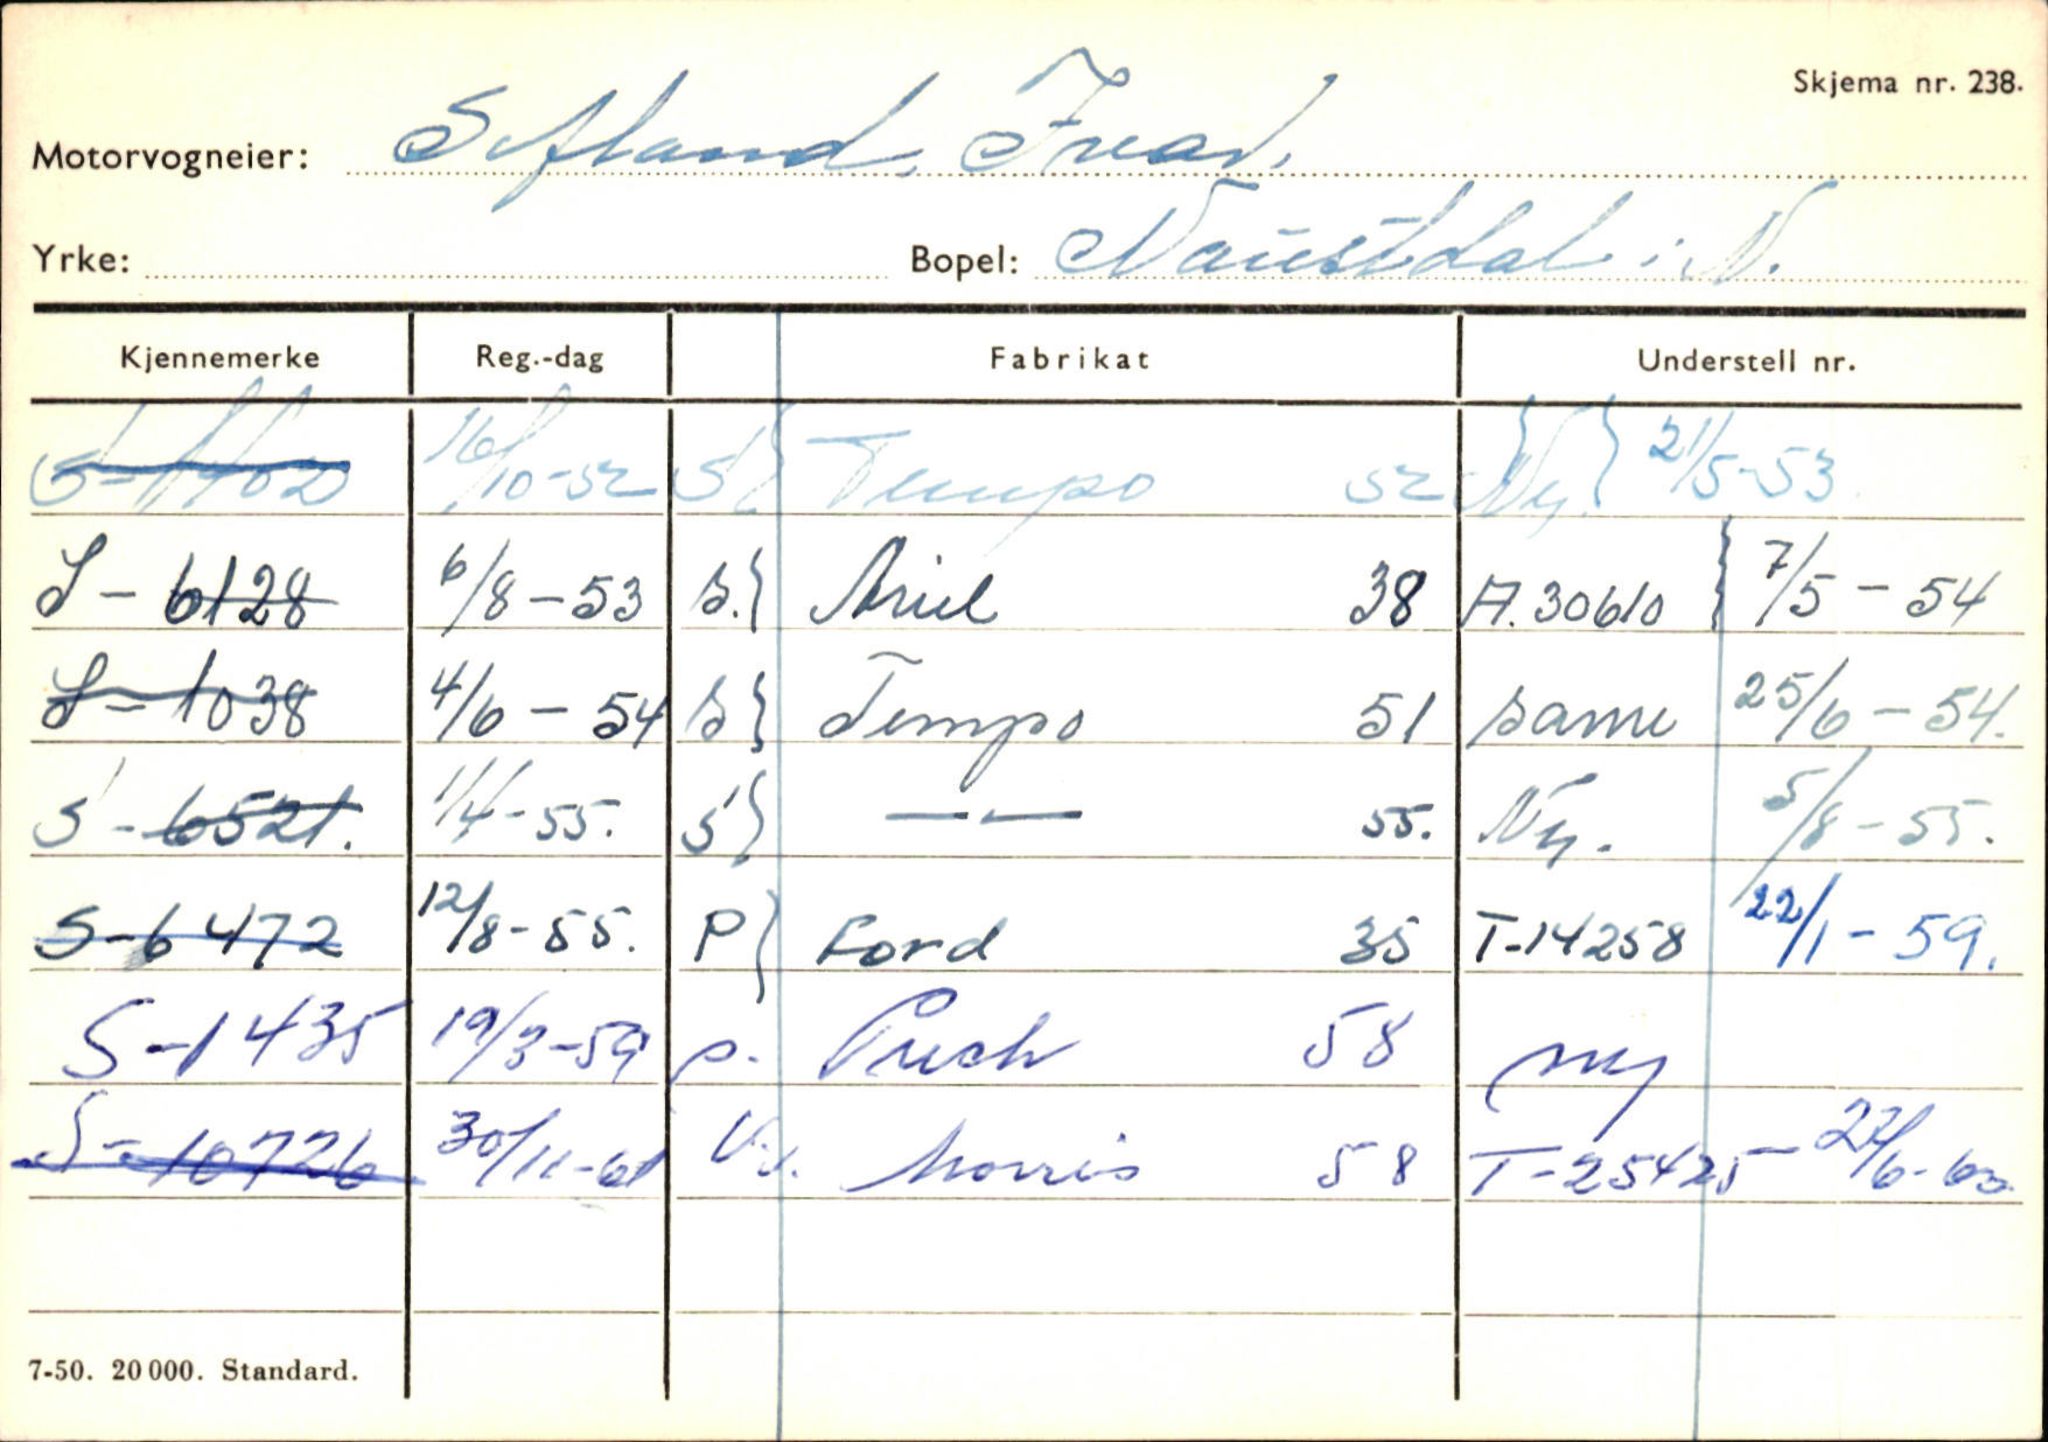 Skjema nr. 238.
Motorvogneier: Sefland, Ivar.
Yrke: Bopel: Naustdal i N.
Kjennemerke Reg.-dag Fabrikat Understell nr.
S-1702 16/10-52 S} Tempo 52 Ny. } 21/5-53
S-6128 6/8-53 s.} Ariel 38 A.30610 } 7/5-54
S-1038 4/6-54 s} Tempo 51 same 25/6-54.
S-6521. 1/4-55. S} —"— 55. Ny. 5/8-55.
S-6472 12/8-55. P} Ford 35 T-14258 22/1-59.
S-1435 19/3-59 p. Puch 58 ny
S-10726 30/11-61 V.v. Morris 58 T-25425 - 27/6-63.
7-50. 20 000. Standard.